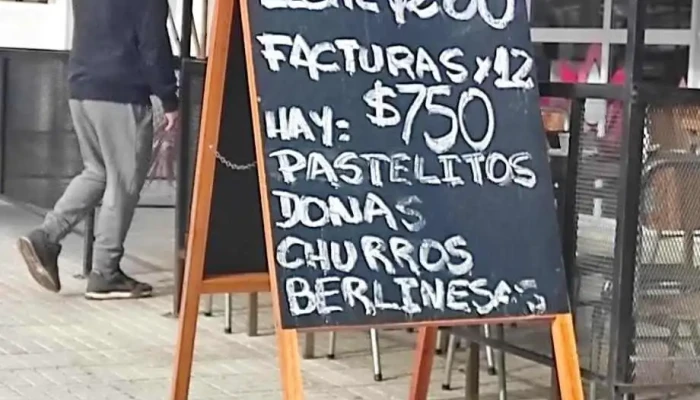 FACTURAS x 12
$750
HAY:
PASTELITOS
DONAS
CHURROS
BERLINESAS